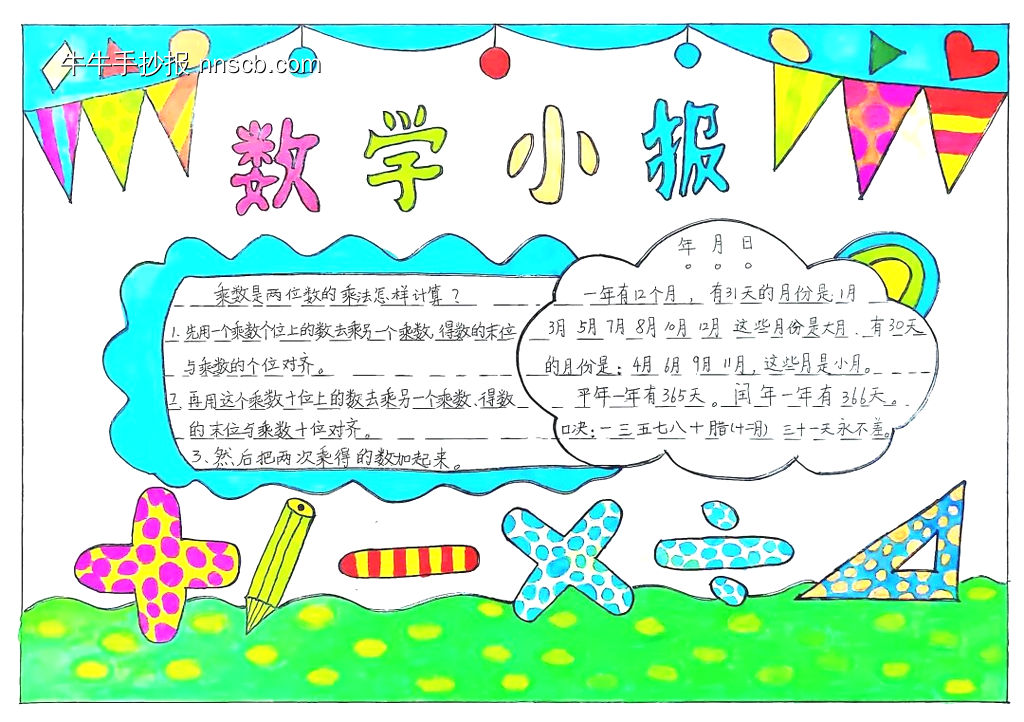 牛牛手抄报 nnscb.com
数学小报
乘数是两位数的乘法怎样计算?
1.先用一个乘数个位上的数去乘另一个乘数,得数的末位
与乘数的个位对齐。
2.再用这个乘数十位上的数去乘另一个乘数,得数
的末位与乘数十位对齐。
3、然后把两次乘得的数加起来。
年月日
一年有12个月,有31天的月份是1月
3月 5月 7月 8月 10月 12月 这些月份是大月.有30天
的月份是:4月 6月 9月 11月,这些月是小月。
平年一年有365天。闰年一年有366天。
口决:一三五七八十腊(十二月) 三十一天永不差。